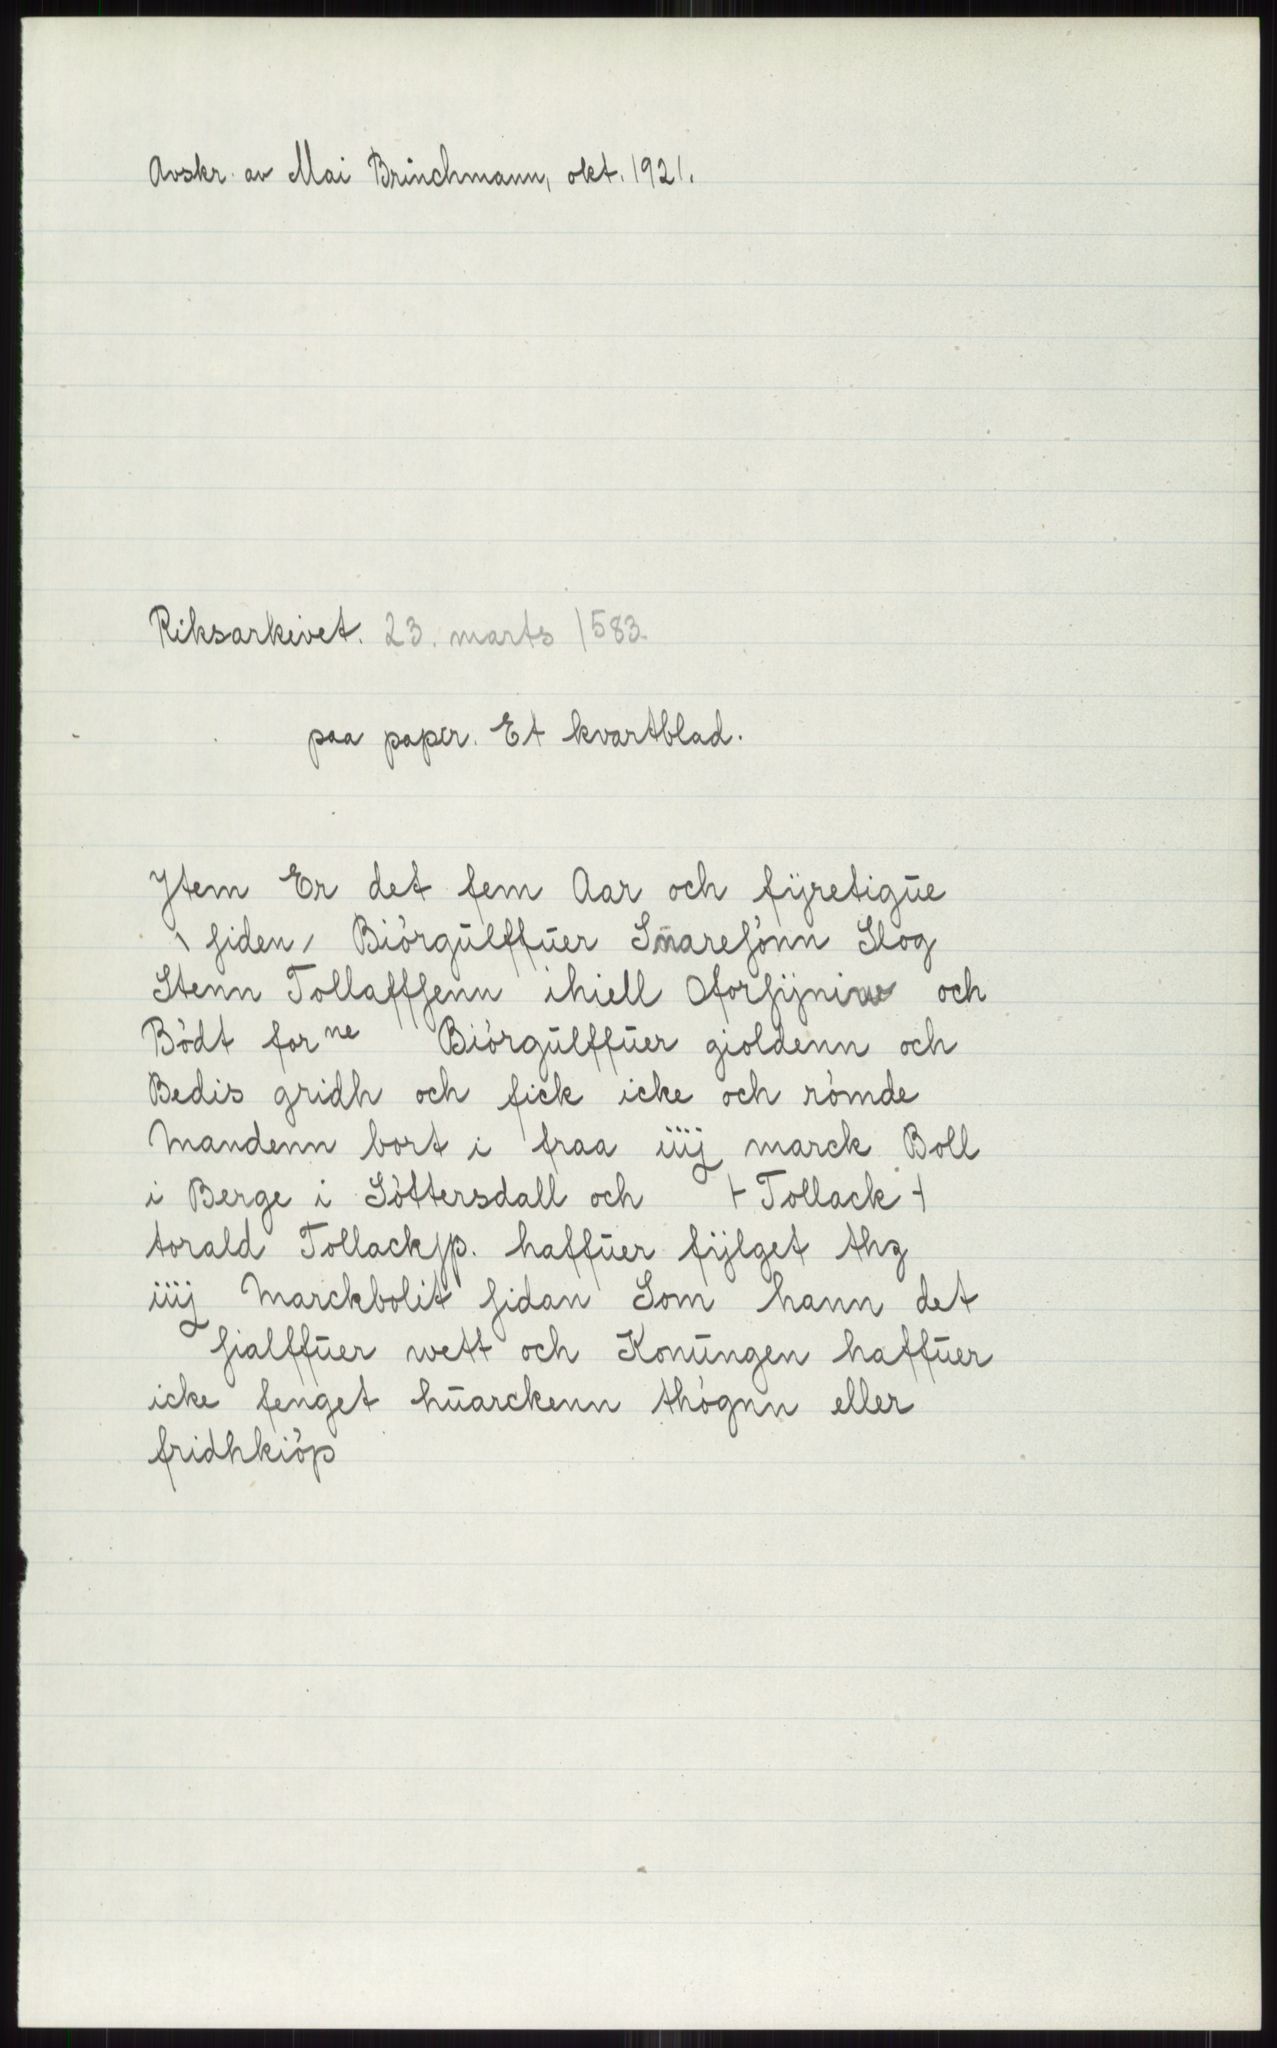 Avskr. av Mai Brinchmann, okt. 1921.
Riksarkivet. 23. marts 1583.
paa paper. Et kvartblad.
Jtem Er det fem Aar och fÿretigūe
\ siden / Biórgūlffūer Snaresónn Slog
Stenn Tollaffsenn ihiell Oforsÿniw och
Bódt forne Biórgūlffūer gioldenn och
Bedis gridh och fick icke och rómde
Mandenn bort i fraa iiij marck Boll
i Berge i Sóttersdall och + Tollack +
torald Tollackſp. haffūer fÿlget thz
iiij Marckbolit sidan Som hann det
sialffūer wett och Konūngen haffūer
icke fenget hūarckenn thógnn eller
fridhkióp